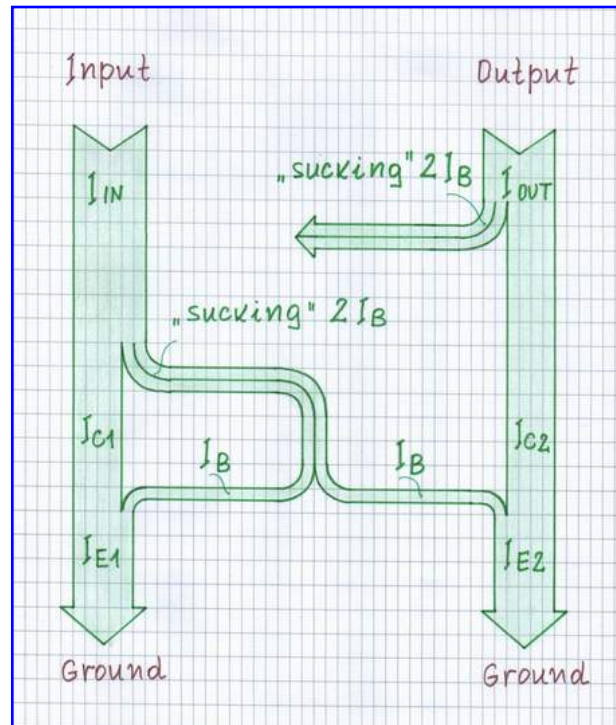 Input
Output
„sucking" 2 I_B
I_IN
I_OUT
„sucking" 2 I_B
I_C1
I_C2
I_B
I_B
I_E1
I_E2
Ground
Ground